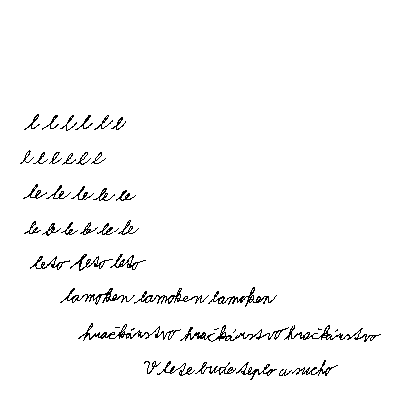 l l l l l l
l l l l l l
le le le le le
le le le le le le
leto leto leto
lamoken lamoken lamoken
hračkárstvo hračkárstvo hračkárstvo
V lete bude teplo a sucho